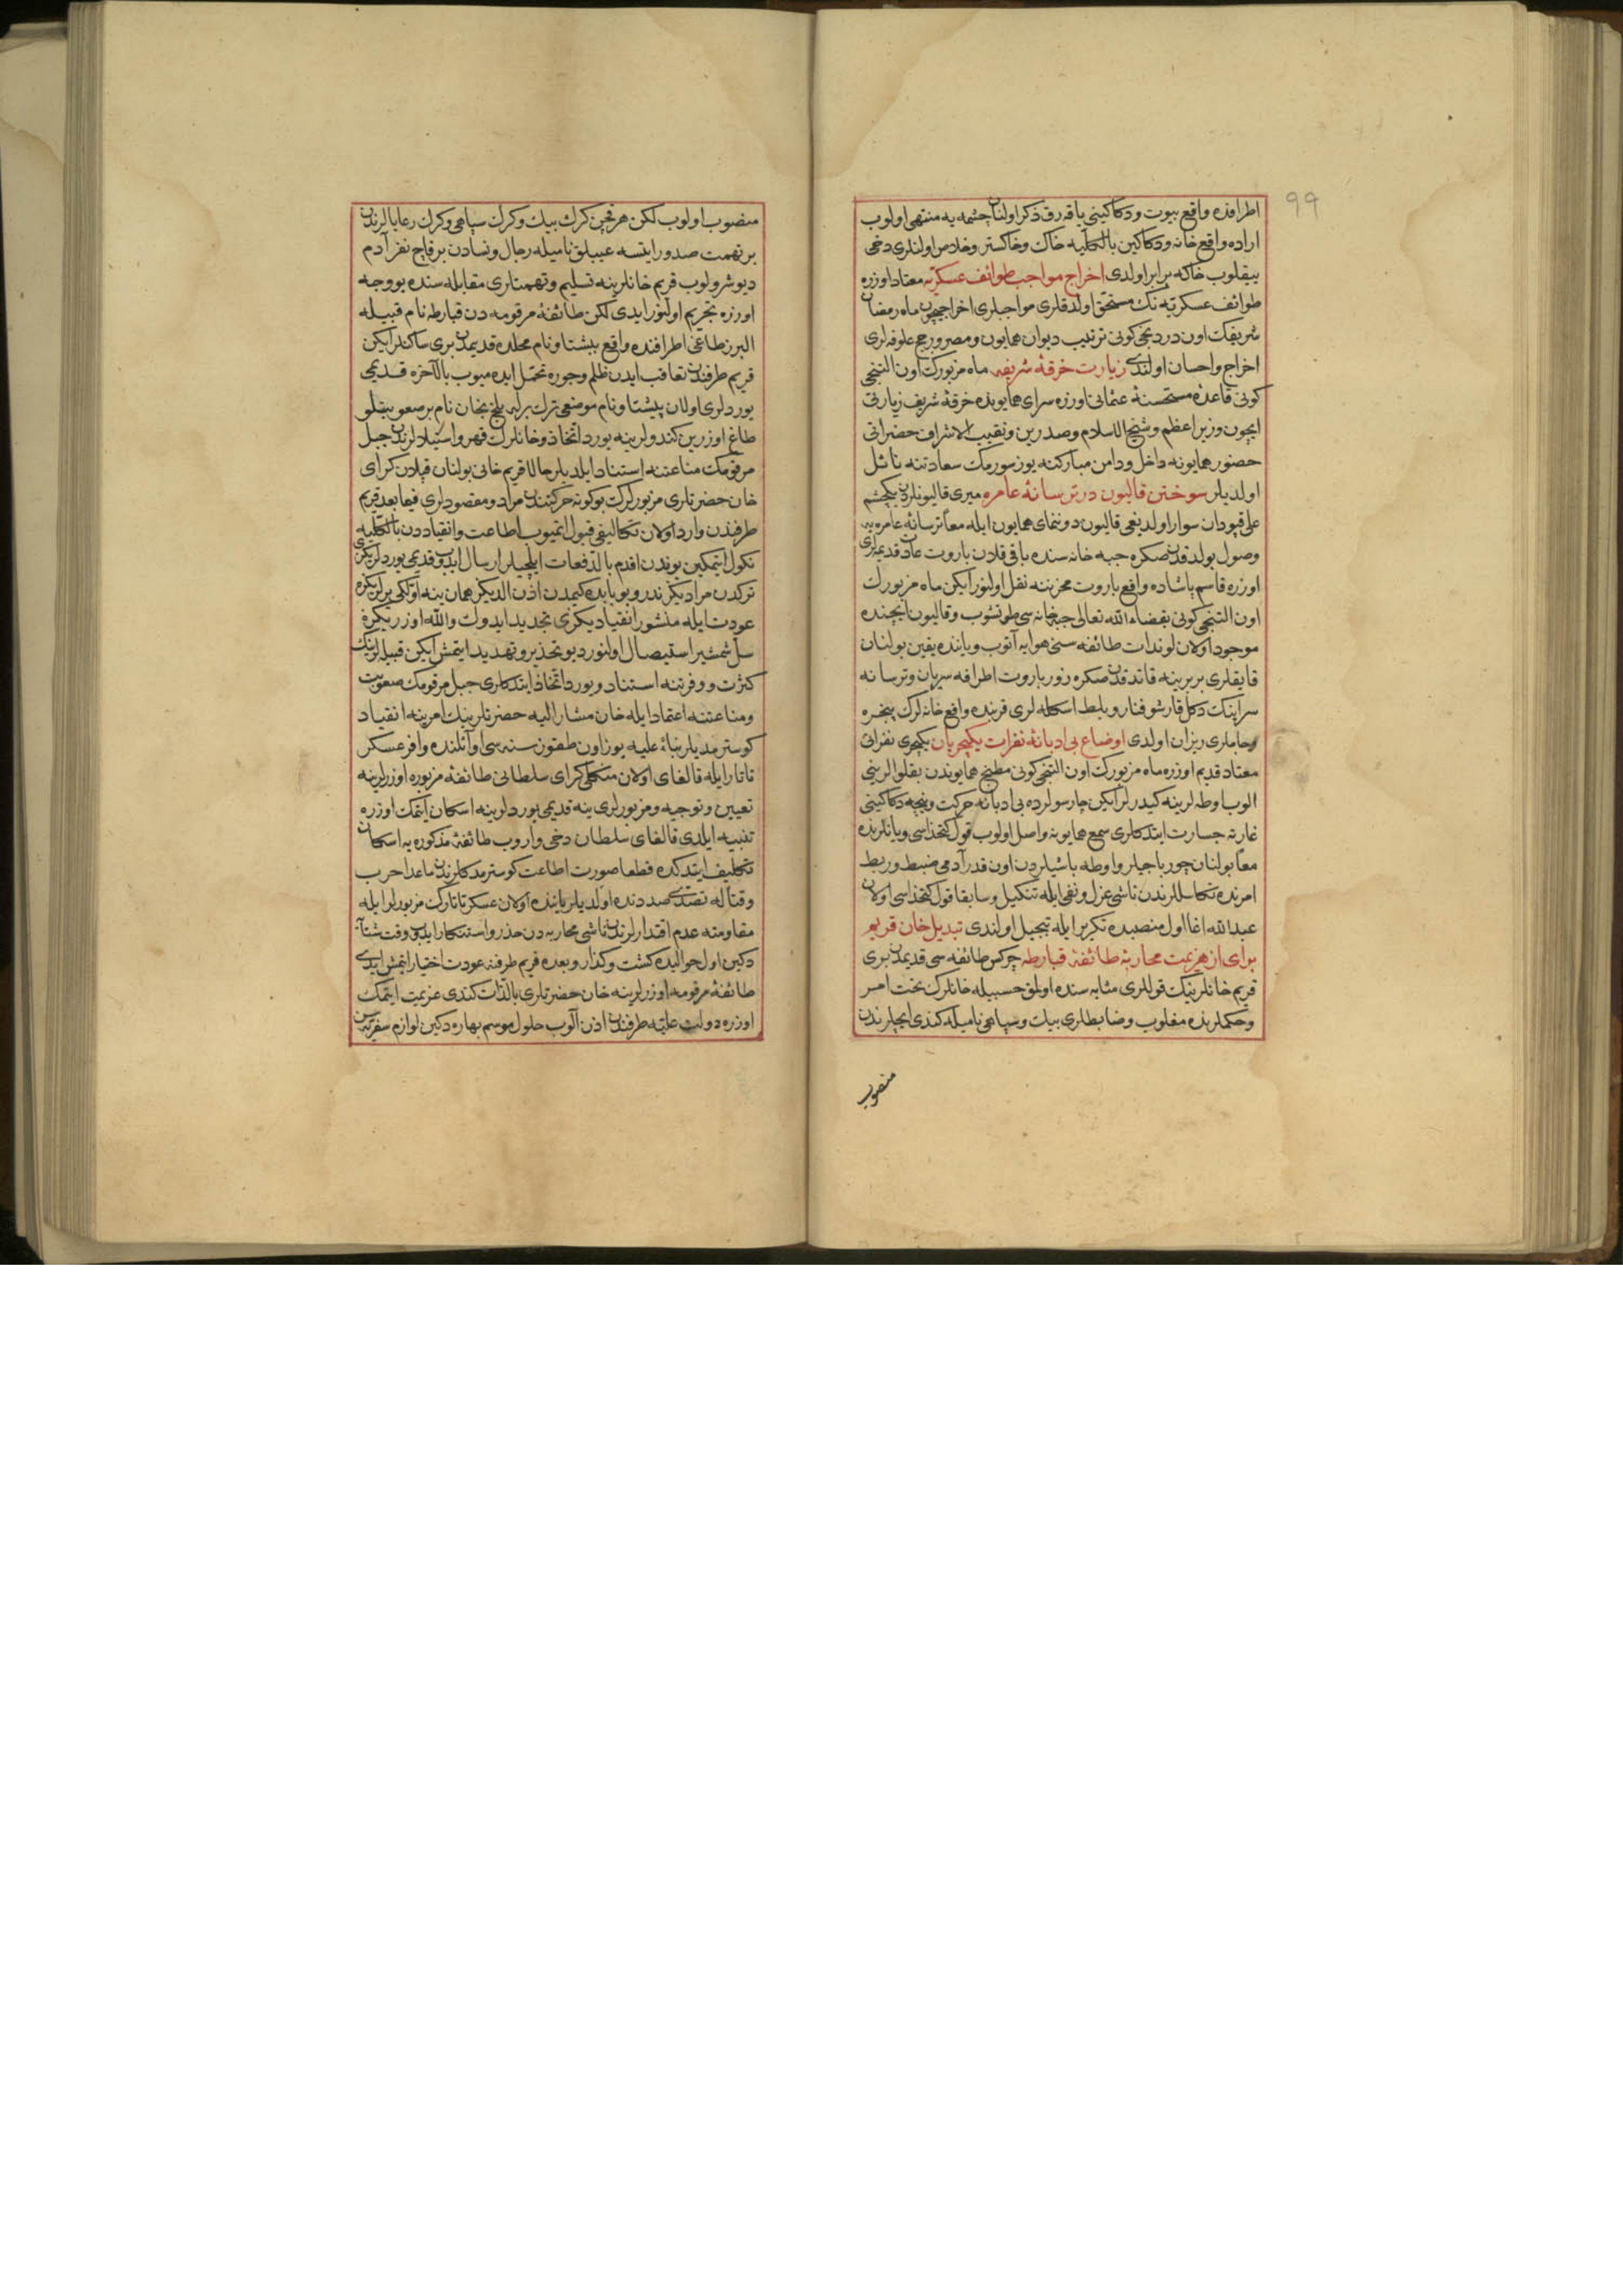 ٩٩
اطرافنده واقع بیوت و دكاكینی یاقه‌رق ذكر اولنان چشمه‌یه منتهی اولوب
اراده واقع خانه و دكاكین بالكلیه خاك و خاكستر و خلاص اولنلری دخی
ییقلوب خاكه برابر اولدی اخراج مواجب طوائف عسكریه معتاد اوزره
طوائف عسكریه‌نك مستحق اولدقلری مواجبلری اخراجیچون ماه رمضان
شریفك اون دردنجی كونی ترتیب دیوان همایون و مصرورجع علوفه‌لری
اخراج و احسان اولندی زیارت خرقهٔ شریفه ماه مزبورك اون التنجی
كونی قاعدهٔ مستحسنهٔ عثمانی اوزره سرای همایونده خرقهٔ شریف زیارتی
ایچون وزیر اعظم و شیخ الاسلام و صدرین و نقیب الاشراف حضراتی
حضور همایونه داخل و دامن مباركنه یوز سورمك سعادتنه نائل
اولدیلر سوختن قالیون در ترسانهٔ عامره میری قالیونلردن ییكچشم
علی قپودان سوار اولدیغی قالیون دوننمای همایون ایله معا ترسانهٔ عامره‌یه
وصول بولدقدن صكره جبه‌خانه‌سنده باقی قلان باروت عادت قدیمه‌لری
اوزره قاسم پاشاده واقع باروت مخزننه نقل اولنور ایكن ماه مزبورك
اون التنجی كونی بقضاء الله تعالی جبخانه‌سی طوتشوب و قالیون ایچنده
موجود اولان لوندات طائفه‌سنی هوایه آتوب و یاننده یقین بولنان
قایقلری بربرینه قاتدقدن صكره زور باروت اطرافه سریان و ترسانه
سراینك دكل قارشو فنار و بلاط اسكله‌لری قربنده واقع خانه‌لرك پنجره
و جاملری ریزان اولدی اوضاع بی‌ادبانهٔ نفرات یكیچریان یكیچری نفراتی
معتاد قدیم اوزره ماه مزبورك اون التنجی كونی مطبخ همایوندن بقلوالرینی
الوب اوطه‌لرینه كیدرلر ایكن چارسولرده بی‌ادبانه حركت و نیجه دكاكینی
غارته جسارت ایتدكلری سمع همایونه واصل اولوب قول كتخداسی و یانلرنده
معا بولنان چورباجیلر و اوطه باشیلردن اون قدر آدمی ضبط و ربط
امرنده تكاسللرندن ناشی عزل و نفی ایله تنكیل و سابقا قول كتخداسی اولان
عبدالله اغا اول منصبده تكریر ایله تبجیل اولندی تبدیل خان قریم
برای از هزیمت محاربهٔ طائفهٔ قبارطه چركس طائفه‌سی قدیمدن بری
قریم خانلرینك قوللری مثابه‌سنده اولمق حسبیله خانلرك تحت امر
و حكملرنده مغلوب و ضابطلری بیك و سپاهی نامیله كندی ایچلرندن
منصوب
منصوب اولوب لكن هر قچن كرك بیك و كرك سپاهی و كرك رعایالرندن
بر تهمت صدور ایتسه عیبلق نامیله رجال و نسادن برقاچ نفر آدم
دیوشرولوب قریم خانلرینه تسلیم و تهمتلری مقابله‌سنده بو وجه
اوزره تجریم اولنور ایدی لكن طائفهٔ مرقومه‌دن قبارطه نام قبیله
البرز طاغی اطرافنده واقع بیشتاو نام محلده قدیمدن بری ساكنلر ایكن
قریم طرفندن تعاقب ایدن ظلم و جوره تحمل ایده‌میوب بالآخره قدیمی
یوردلری اولان پیشتاو نام موضعی ترك برله بلخ‌نجان نام بر صعوبتلو
طاغ اوزرین كندولرینه یورد اتخاذ و خانلرك قهر و استیلالرندن جبل
مرقومك مناعتنه استناد ایلدیلر حالا قریم خانی بولنان قپلان كرای
خان حضرتلری مزبورلرك بوكونه حركتندن مراد و مقصودلری فیمابعد قریم
طرفندن وارد اولان تكالیفی قبول ایتمیوب اطاعت و انقیاددن بالكلیه
نكول ایتمكین بوندن اقدم بالدفعات ایلچیلر ارسال ایدوب قدیمی یوردلریكزی
تركدن مرادیكز ندر و بو بابده كیمدن اذن الدیكز همان ینه اولكی یرلریكزه
عودت ایله منشور انقیادیكزی تجدید ایدوك والله اوزریكزه
سل شمشیر استیصال اولنور دیو تحذیر و تهدید ایتمش ایكن قبیله‌لرینك
كثرت و وفرتنه استناد و یورد اتخاذ ایتدكلری جبل مرقومك صعوبت
و مناعتنه اعتماد ایله خان مشار الیه حضرتلرینك امرینه انقیاد
كوسترمدیلر بناءً علیه یوز اون طقوز سنه‌سی اوائلنده وافر عسكر
تاتار ایله قالغای اولان منكلی كرای سلطانی طائفهٔ مزبوره اوزرلرینه
تعیین و توجیه و مزبورلری ینه قدیمی یوردلرینه اسكان ایتمك اوزره
تنبیه ایلدی قالغای سلطان دخی واروب طائفهٔ مذكوره‌یه اسكان
تكلیف ایتدكده قطعا صورت اطاعت كوسترمدكلرندن ماعدا حرب
و قتاله تصدی صددنده اولدیلر یاننده اولان عسكر تاتارك مزبورلر ایله
مقاومته عدم اقتدارلرندن ناشی محاربه‌دن حذر و استنكار ایدوب وقت شتا
دكین اول حوالیده كشت و كذار و بعده قریم طرفنه عودت اختیار ایتمش ایدی
طائفهٔ مرقومه اوزرلرینه خان حضرتلری بالذات كندی عزیمت ایتمك
اوزره دولت علیه طرفندن اذن آلوب حلول موسم بهاره دكین لوازم سفریه‌سن